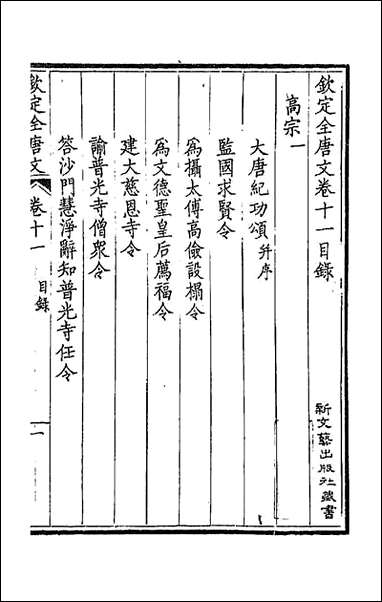 欽定全唐文卷十一目錄
高宗一
大唐紀功頌并序
監國求賢令
爲攝太傅高儉設榻令
爲文德聖皇后薦福令
建大慈恩寺令
諭普光寺僧衆令
答沙門慧淨辭知普光寺任令
欽定全唐文
卷十一
目錄
一
新文藝出版社藏書